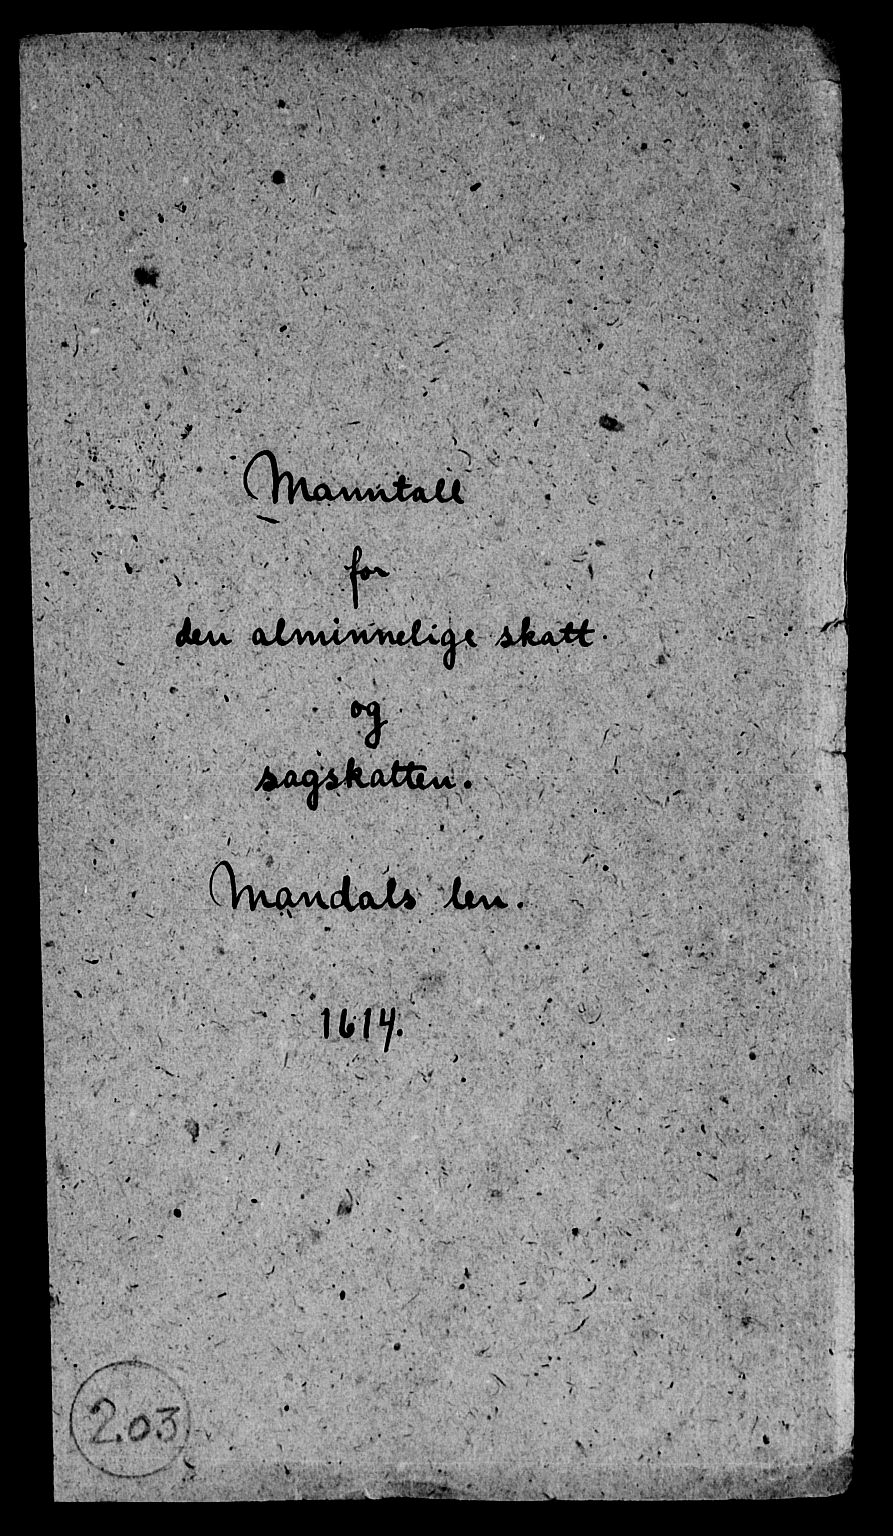 Manntall
for
den alminnelige skatt
og
sagskatten.
Mandals len.
1614.
2.03